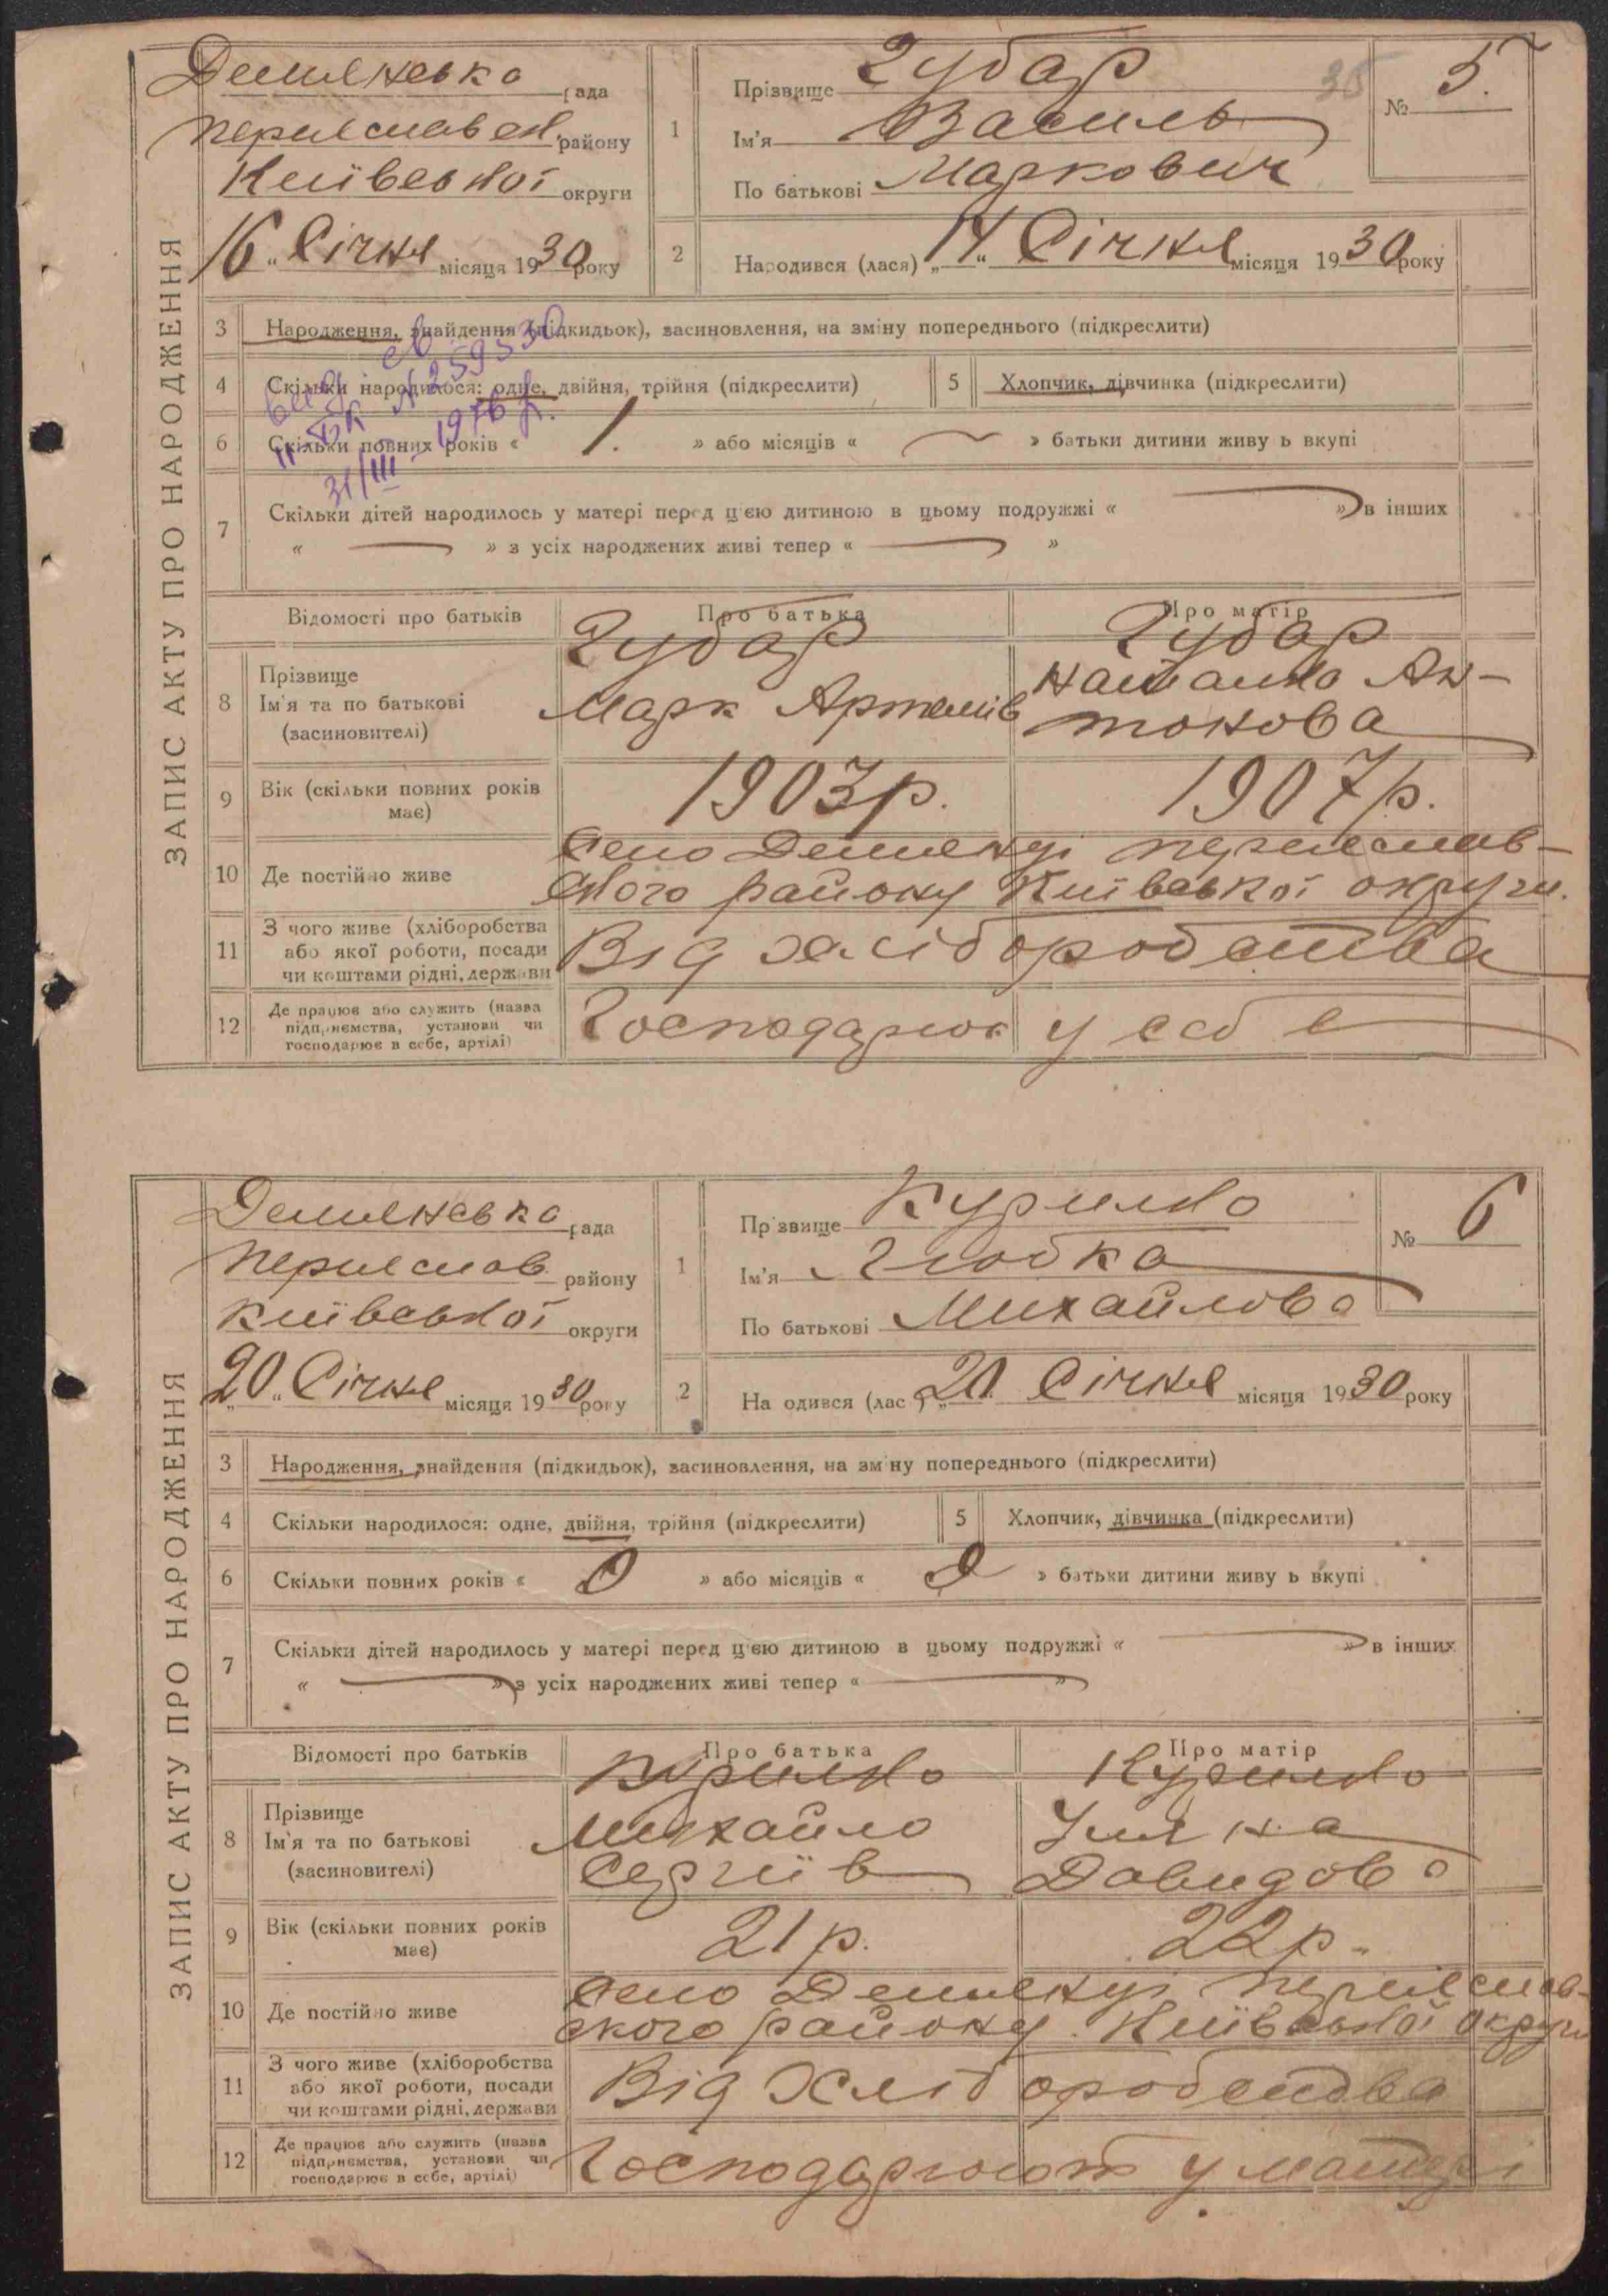 ЗАПИС АКТУ ПРО НАРОДЖЕННЯ
Демянська рада
Переяславськ. району
Київської округи
16 „ Січня місяця 1930 року
1
Прізвище Губар
Ім'я Василь
По батькові Маркович
35
№ 5.
2
Народився (лася) „ 14 “ Січня місяця 1930 року
3 Народження, знайдення (підкидьок), засиновлення, на зміну попереднього (підкреслити)
4 Скільки народилося: одне, двійня, трійня (підкреслити)
5 Хлопчик, дівчинка (підкреслити)
6 Скільки повних років « 1. » або місяців « — » батьки дитини живу ь вкупі
вид. св.
II-БК № 259530
31/III – 1976 р.
7 Скільки дітей народилось у матері перед цією дитиною в цьому подружжі « — » в інших
« — » з усіх народжених живі тепер « — »
Відомості про батьків
Про батька
Про матір
8 Прізвище
Ім'я та по батькові
(засиновителі)
Губар
Марк Артемів
Губар
Наталка Ан-
тонова
9 Вік (скільки повних років
має)
1903р.
1907р.
10 Де постійно живе
Село Демянці переяслав-
ського району Київської округи.
11 З чого живе (хліборобства
або якої роботи, посади
чи коштами рідні, держави
Від хліборобства
12 Де працює або служить (назва
підприємства, установи чи
господарює в себе, артілі)
Господарює у себе
ЗАПИС АКТУ ПРО НАРОДЖЕННЯ
Демянська рада
Переяслав району
Київської округи
20 „ Січня місяця 1930 року
1
Прізвище Курилко
Ім'я Любка
По батькові Михайлова
№ 6
2
На одився (лас ) „ 20 Січня місяця 1930 року
3 Народження, знайдення (підкидьок), засиновлення, на зм ну попереднього (підкреслити)
4 Скільки народилося: одне, двійня, трійня (підкреслити)
5 Хлопчик, дівчинка (підкреслити)
6 Скільки повних років « 0 » або місяців « 0 » батьки дитини живу ь вкупі
7 Скільки дітей народилось у матері перед цією дитиною в цьому подружжі « — » в інших
« — » з усіх народжених живі тепер « — »
Відомості про батьків
Про батька
Про матір
8 Прізвище
Ім'я та по батькові
(засиновителі)
Курилко
Михайло
Сергіїв
Курилко
Улянка
Давидова
9 Вік (скільки повних років
має)
21р.
22р.
10 Де постійно живе
Село Демянці Переяслав-
ского району Київської округи
11 З чого живе (хліборобства
або якої роботи, посади
чи коштами рідні, держави
Від Хліборобства
12 Де працює або служить (назва
підприємства, установи чи
господарює в себе, артілі)
Господарюють у матері